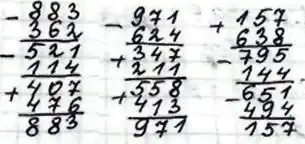 - 883
362
- 521
114
+ 407
476
883
- 971
624
+ 347
211
+ 558
413
971
+ 157
638
- 795
144
- 651
494
157